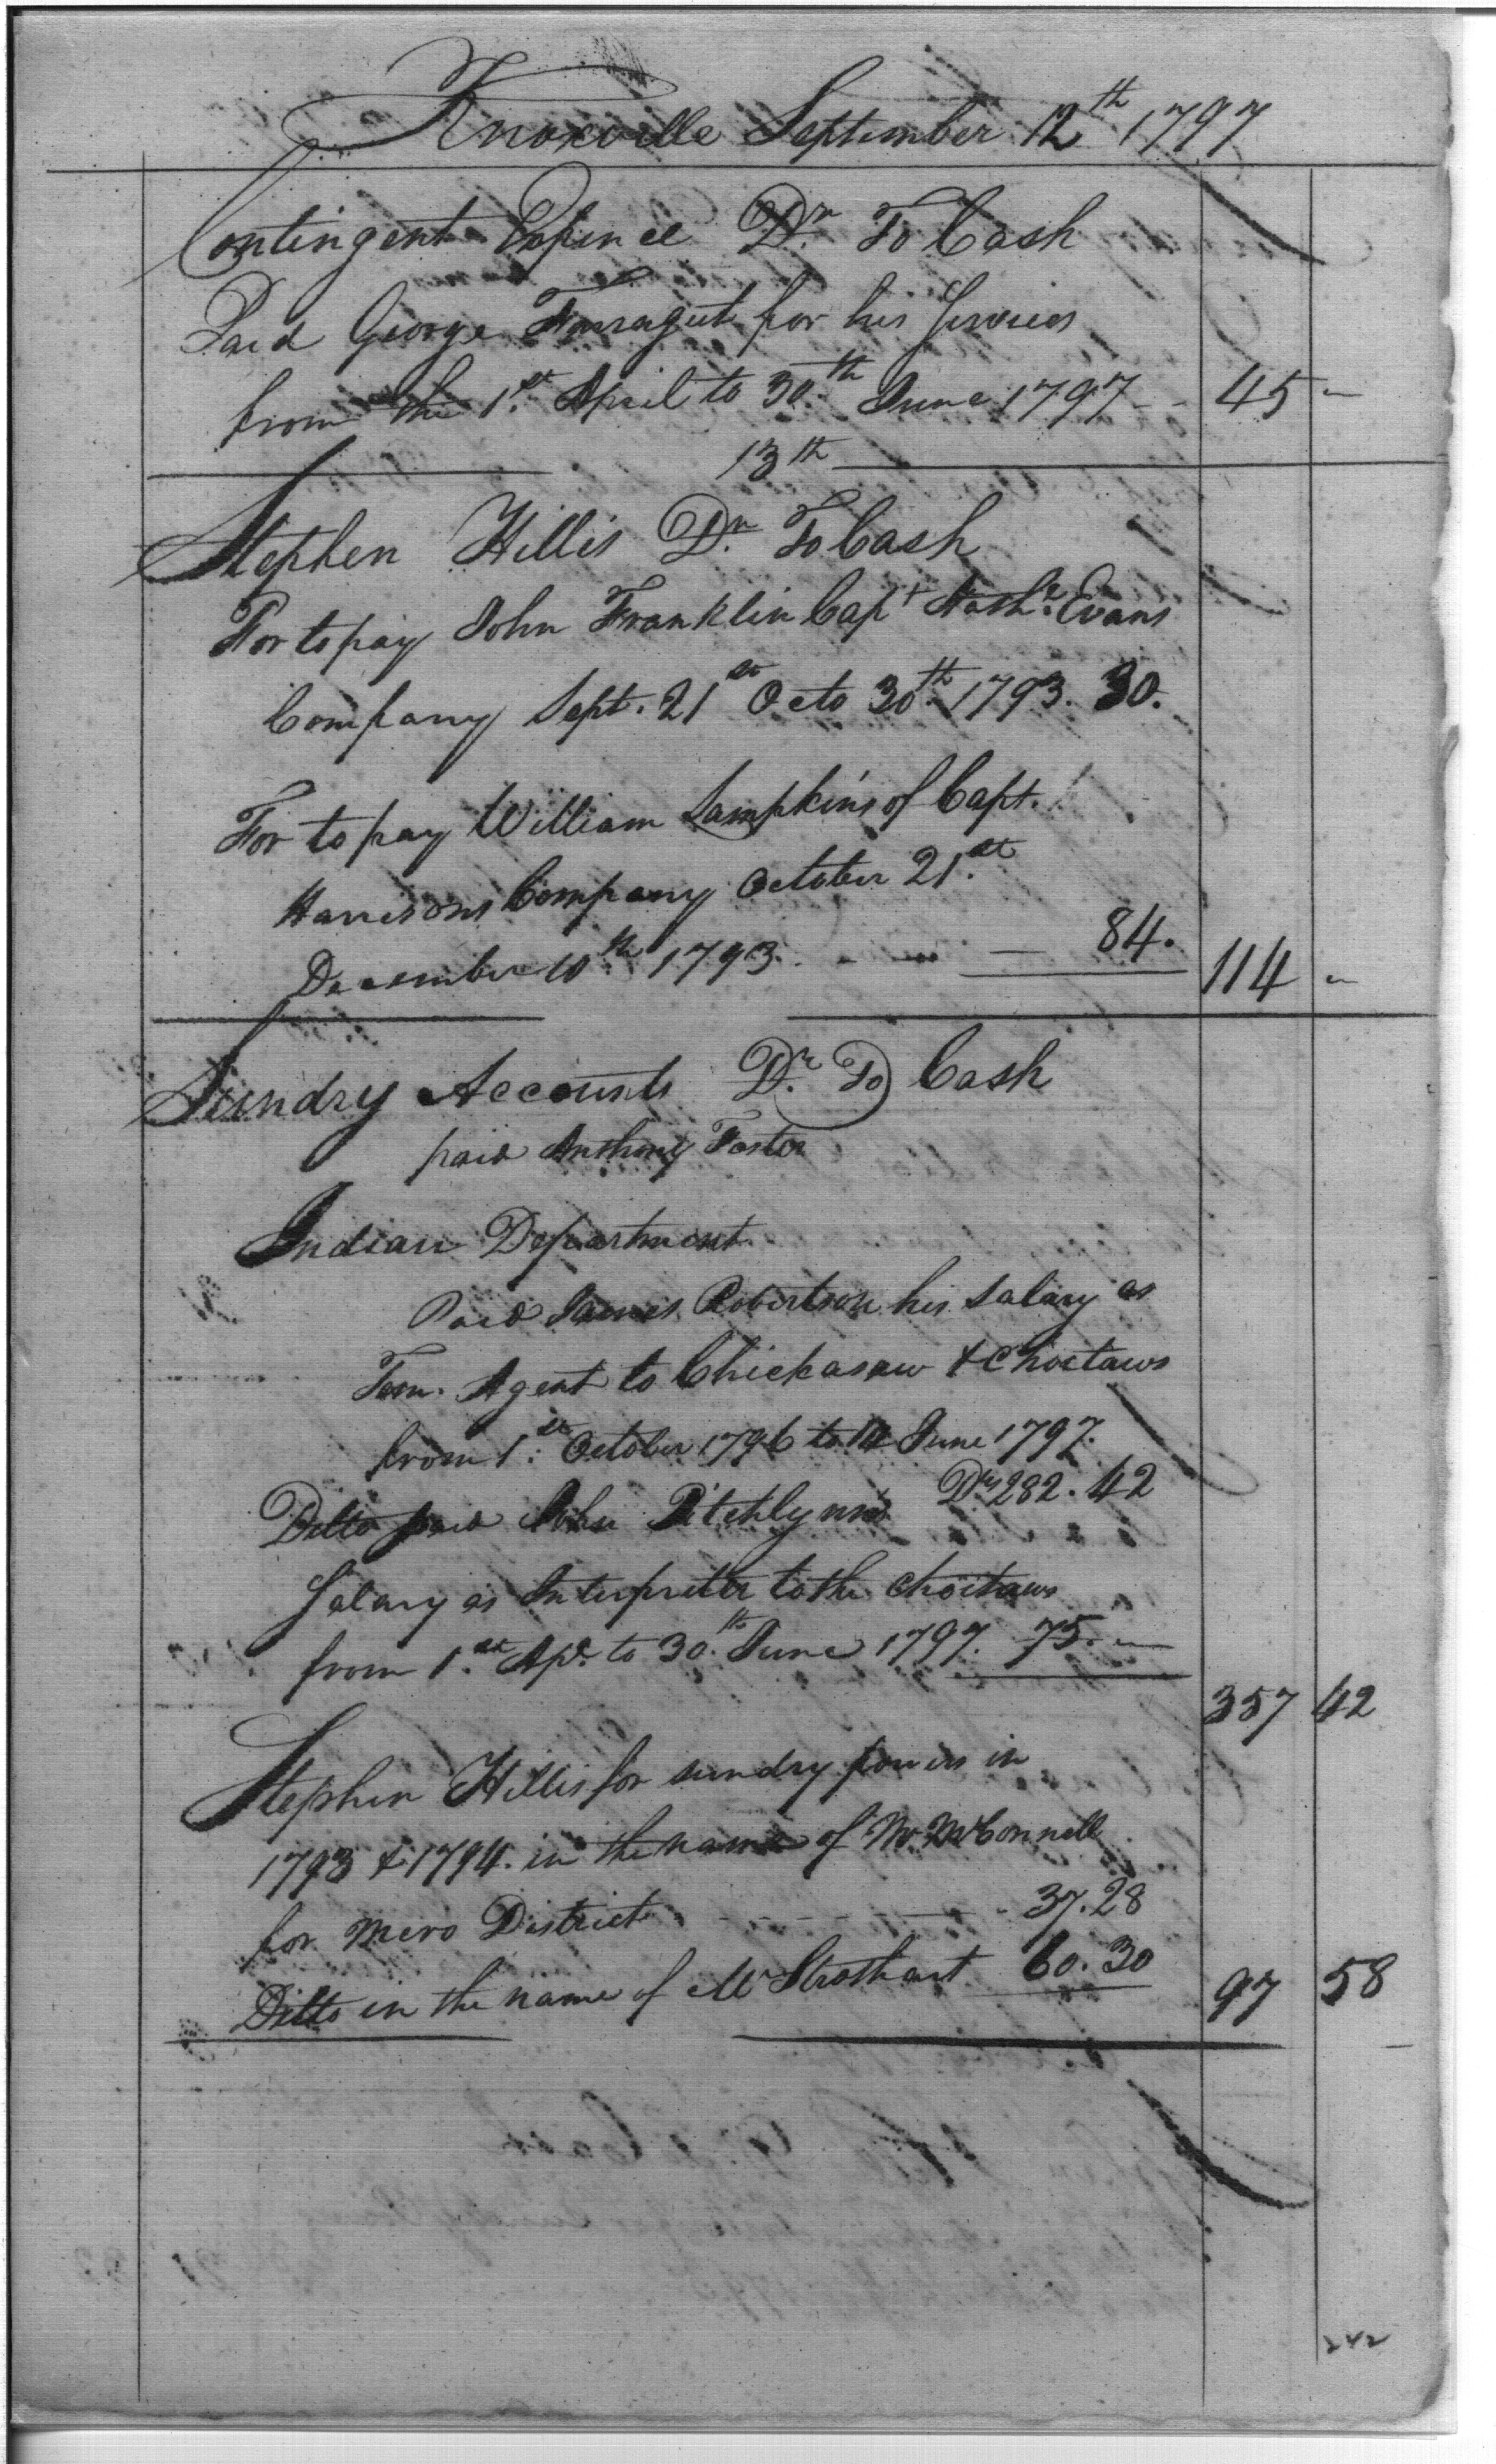 Knoxville September 12th 1797
Contingent Expence Dr. To Cash
Paid George Farragut for his Services
from the 1st. April to 30th. June 1797 - - 45 -
13th
Stephen Hillis Dr. To Cash
For to pay John Franklin Capt Nathl. Evans
Company Sept. 21st Octo 30th. 1793. 30.
For to pay William Lampkins of Capt.
Harrisons Company October 21.st
December 10th 1793. - - - 84. 114 -
Sundry Accounts Dr. To Cash
paid Anthony Foster
Indian Department
Paid James Robertson his Salary as
Tem. Agent to Chickasaw & Choctaws
from 1.st October 1796 to June 1797.
Drs 282. 42
Ditto paid John Pitchlynns
Salary as Interpreter to the Choctaws
from 1.st Apl. to 30.th June 1797. 75. -
357 42
Stephen Hillis for sundry powers in
1793 & 1794. in the name of Mr. McConnell
for Mero District - - - - 37.28
Ditto in the name of Mr Strothart 60.30 97 58
242